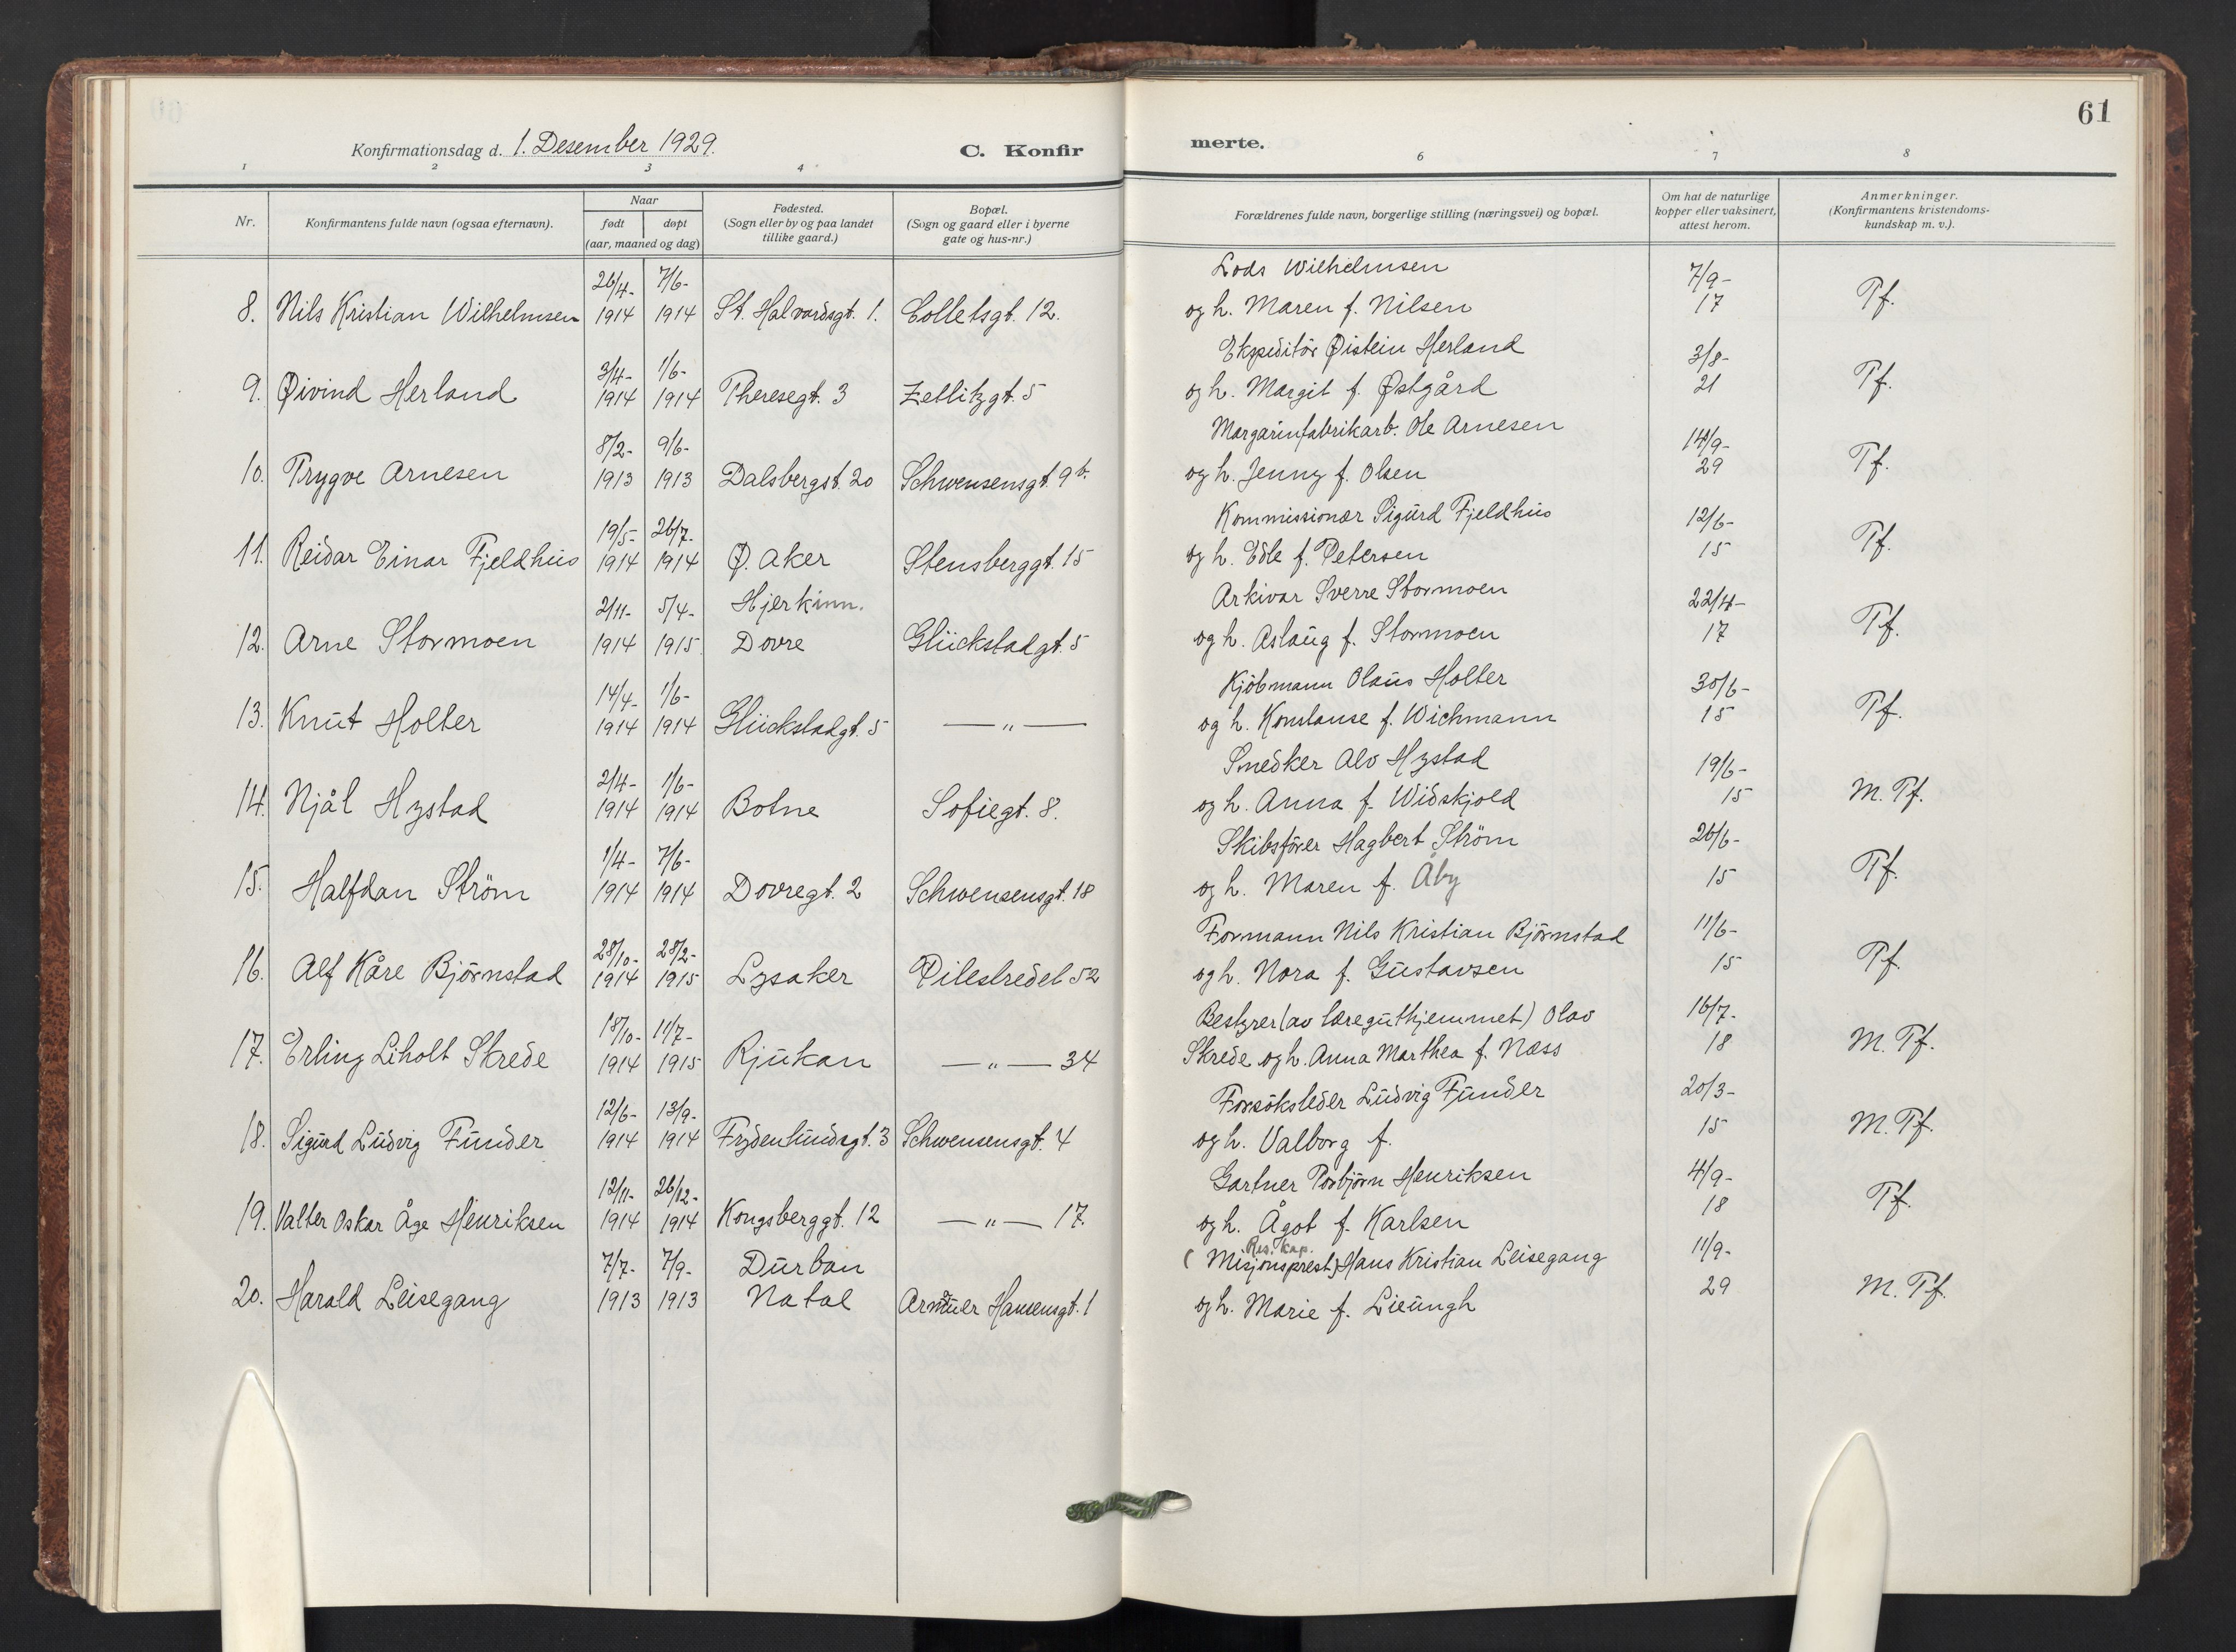 61
Konfirmationsdag d. 1. Desember 1929.
C. Konfirmerte.
1 2 3 4 6 7 8
Nr.
Konfirmantens fulde navn (ogsaa efternavn).
Naar
født døpt
(aar, maaned og dag)
Fødested.
(Sogn eller by og paa landet
tillike gaard.)
Bopæl.
(Sogn og gaard eller i byerne
gate og hus-nr.)
Forældrenes fulde navn, borgerlige stilling (næringsvei) og bopæl.
Om hat de naturlige
kopper eller vaksinert,
attest herom.
Anmerkninger.
(Konfirmantens kristendoms-
kundskap m. v.).
26/4- 7/6- Lods Wilhelmsen 7/9-
8. Nils Kristian Wilhelmsen 1914 1914 St. Halvardsgt. 1. Colletsgt. 12. og h. Maren f. Nilsen 17 Tf.
3/4- 1/6- Ekspeditör Øistein Herland 3/8-
9. Øivind Herland 1914 1914 Theresegt. 3 Zetlitzgt. 5 og h. Margit f. Østgård 21 Tf.
8/2- 9/6- Margarinfabrikarb. Ole Arnesen 14/9-
10. Trygve Arnesen 1913 1913 Dalsbergst. 20 Schwensensgt. 9 b. og h. Jenny f. Olsen 29 Tf.
19/5- 26/7- Kommissionær Sigurd Fjeldhus 12/6-
11. Reidar Einar Fjeldhus 1914 1914 Ø. Aker Stensberggt. 15 og h. Edle f. Petersen 15 Tf.
2/11- 5/4- Hjerkinn. Arkivar Sverre Stormoen 22/4-
12. Arne Stormoen 1914 1915 Dovre Glückstadgt. 5 og h. Aslaug f. Stormoen 17 Tf.
14/4- 1/6- Kjöbmann Olaus Holter 30/6-
13. Knut Holter 1914 1914 Glückstadgt. 5 — " — og h. Konstanse f. Wichmann 15 Tf.
2/4- 1/6- Snedker Alv Hystad 19/6-
14. Njål Hystad 1914 1914 Botne Sofiegt. 8. og h. Anna f. Widskjold 15 M. Tf.
1/4- 7/6- Skibsförer Hagbert Ström 26/6-
15. Halfdan Ström 1914 1914 Dovregt. 2 Schwensensgt. 18 og h. Maren f. Åby 15 Tf.
28/10- 28/2- Formann Nils Kristian Björnstad 11/6-
16. Alf Kåre Björnstad 1914 1915 Lysaker Pilestredet 52 og h. Nora f. Gustavsen 15 Tf.
18/10- 11/7- Bestyrer (av læreguthjemmet) Olav 16/7-
17. Erling Liholt Skrede 1914 1915 Rjukan — " — 34 Skrede og h. Anna Marthea f. Næss 18 M. Tf.
12/6- 13/9- Forsöksleder Ludvig Funder 20/3-
18. Sigurd Ludvig Funder 1914 1914 Frydenlundsgt. 3 Schwensensgt. 4 og h. Valborg f. 15 M. Tf.
12/11- 26/12- Gartner Torbjörn Henriksen 4/9-
19. Valter Oskar Åge Henriksen 1914 1914 Kongsberggt. 12 — " — 17. og h. Ågot f. Karlsen 18 Tf.
Res. kap.
7/7- 7/9- Durban (Misjonsprest) Hans Kristian Leisegang 11/9-
20. Harald Leisegang 1913 1913 Natal Armauer Hansensgt. 1 og h. Marie f. Lieungh 29 M. Tf.